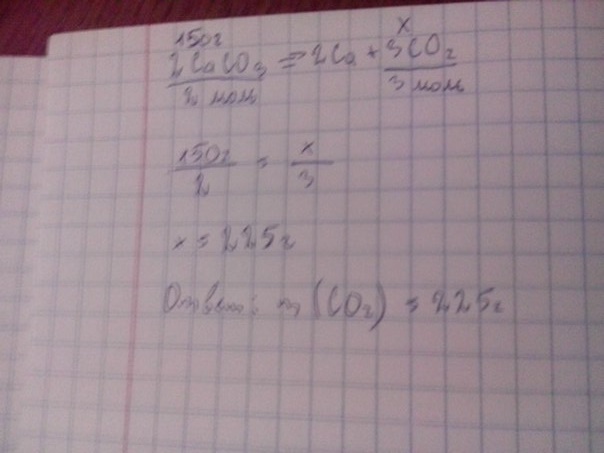 150г x
2CaCO3 = 2Ca + 3CO2
2 моль 3 моль
150г/2 = x/3
x = 225г
Ответ: m (CO2) = 225г